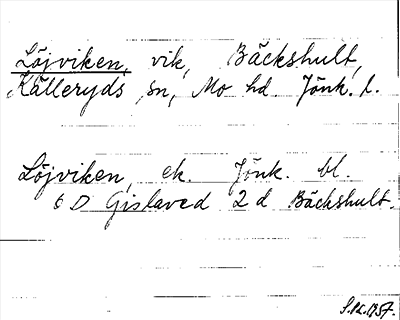 Löjviken, vik, Bäckshult,
Källeryds sn, Mo hd Jönk. l.
Löjviken, ek. Jönk. bl.
6 D Gislaved 2 d Bäckshult.
1957.